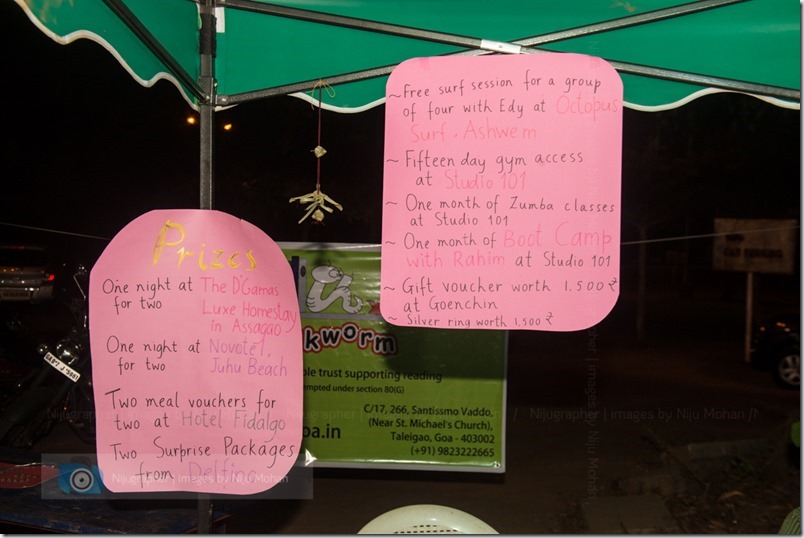 Prizes
One night at The D'Gamas
for two Luxe Homestay
in Assagao
One night at Novotel,
for two Juhu Beach
Two meal vouchers for
two at Hotel Fidalgo
Two Surprise Packages
from Delfino
~ Free surf session for a group
of four with Edy at Octopus
Surf. Ashwem
~ Fifteen day gym access
at Studio 101
~ One month of Zumba classes
at Studio 101
~ One month of Boot Camp
with Rahim at Studio 101
~ Gift voucher worth 1.500 ₹
at Goenchin
~ Silver ring worth 1,500 ₹
kworm
ble trust supporting reading
empted under section 80(G)
C/17, 266, Santissmo Vaddo,
(Near St. Michael's Church),
Taleigao, Goa - 403002
(+91) 9823222665
oa.in
Nijugrapher | images by Niju Mohan